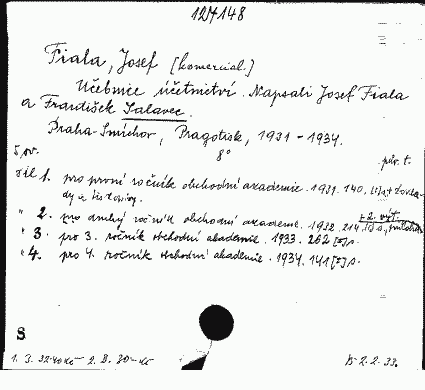 12Y148
Fiala, Josef [komercial.]
Učebnice účetnictví. Napsali Josef Fiala
a František Salavec.
Praha-Smíchov, Pragotisk, 1931-1934.
8°
5 sv. pův. t.
díl 1. pro první ročník obchodní akademie. 1931. 140, [1] s.
" 2. pro druhý ročník obchodní akademie. 1932. 214, [1] s.
+ 2. výt.
" 3. pro 3. ročník obchodní akademie. 1933. 262 [2] s.
" 4. pro 4. ročník obchodní akademie. 1934. 141 [2] s.
S
1. 3. 32·40 Kč 2. 8. 30·- Kč
2.2.33.